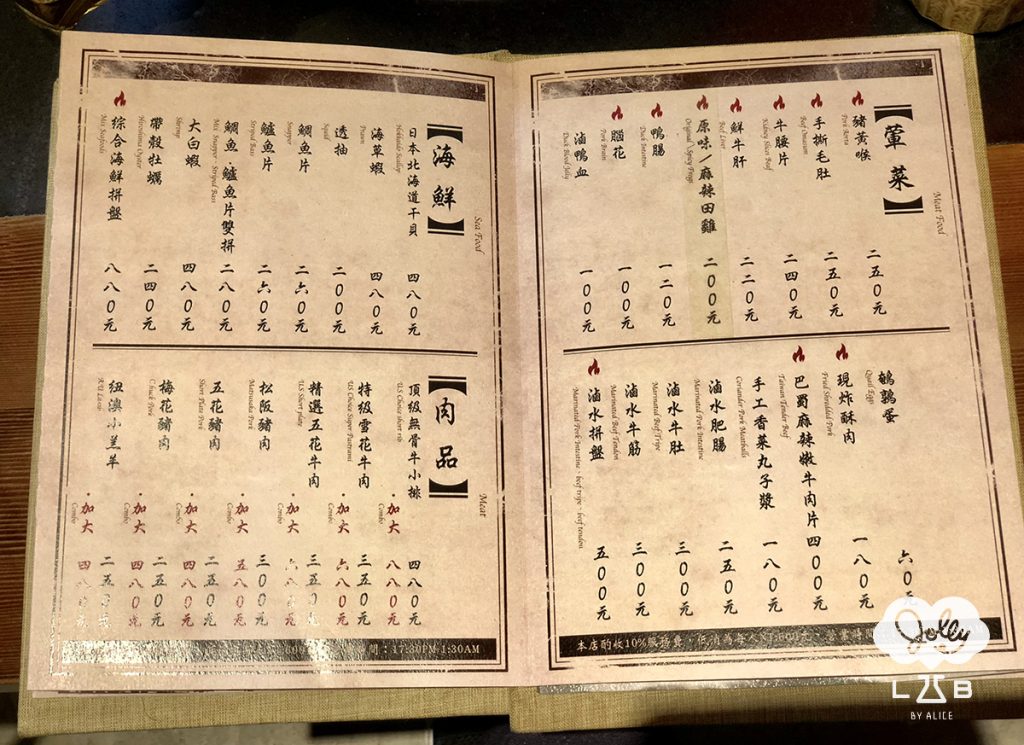 【葷菜】
Meat Food
豬黃喉
Pork Aorta
二五0元
手撕毛肚
Beef Omasum
二五0元
牛腰片
Kidney Slice Beef
二四0元
鮮牛肝
Beef Liver
二二0元
原味/麻辣田雞
Original \ Spicy Frogs
二00元
鴨腸
Duck Intestine
一二0元
腦花
Pork Brain
一00元
滷鴨血
Duck Blood Jelly
一00元
鵪鶉蛋
Quail Eggs
六0元
現炸酥肉
Fried Shredded Pork
一八0元
巴蜀麻辣嫩牛肉片
Taiwan Tender Beef
四00元
手工香菜丸子漿
Coriander Pork Meatballs
一八0元
滷水肥腸
Marinated Pork Intestine
二五0元
滷水牛肚
Marinated Beef Tripe
三00元
滷水牛筋
Marinated Beef Tendon
三00元
滷水拼盤
Marinated Pork Intestine、beef tripe、beef tendon
五00元
本店酌收10%服務費，低消為每人
【海鮮】
Sea Food
日本北海道干貝
Hokkaido Scallop
四八0元
海草蝦
Prawn
四八0元
透抽
Squid
二00元
鯛魚片
Snapper
二六0元
鱸魚片
Striped Bass
二六0元
鯛魚.鱸魚片雙拼
Mix Snapper、Striped Bass
二八0元
大白蝦
Shrimp
四八0元
帶殼牡蠣
Hiroshima Oysters
二四0元
綜合海鮮拼盤
Mix Seafoods
八八0元
【肉品】
Meat
頂級無骨牛小排
US Choice short rib
四八0元
・加大
Combo
八八0元
特級雪花牛肉
US Choice Super Pastrami
三五0元
・加大
Combo
六八0元
精選五花牛肉
US Short plate
三五0元
・加大
Combo
六八0元
松阪豬肉
Matsusaka Pork
三00元
・加大
Combo
五八0元
五花豬肉
Short Plate Pork
二五0元
・加大
Combo
四八0元
梅花豬肉
Chuck Pork
二五0元
・加大
Combo
四八0元
紐澳小羔羊
二五0元
・加大
Combo
四八0元
間：17:30PM-1:30AM
Jolly
LAB
BY ALICE